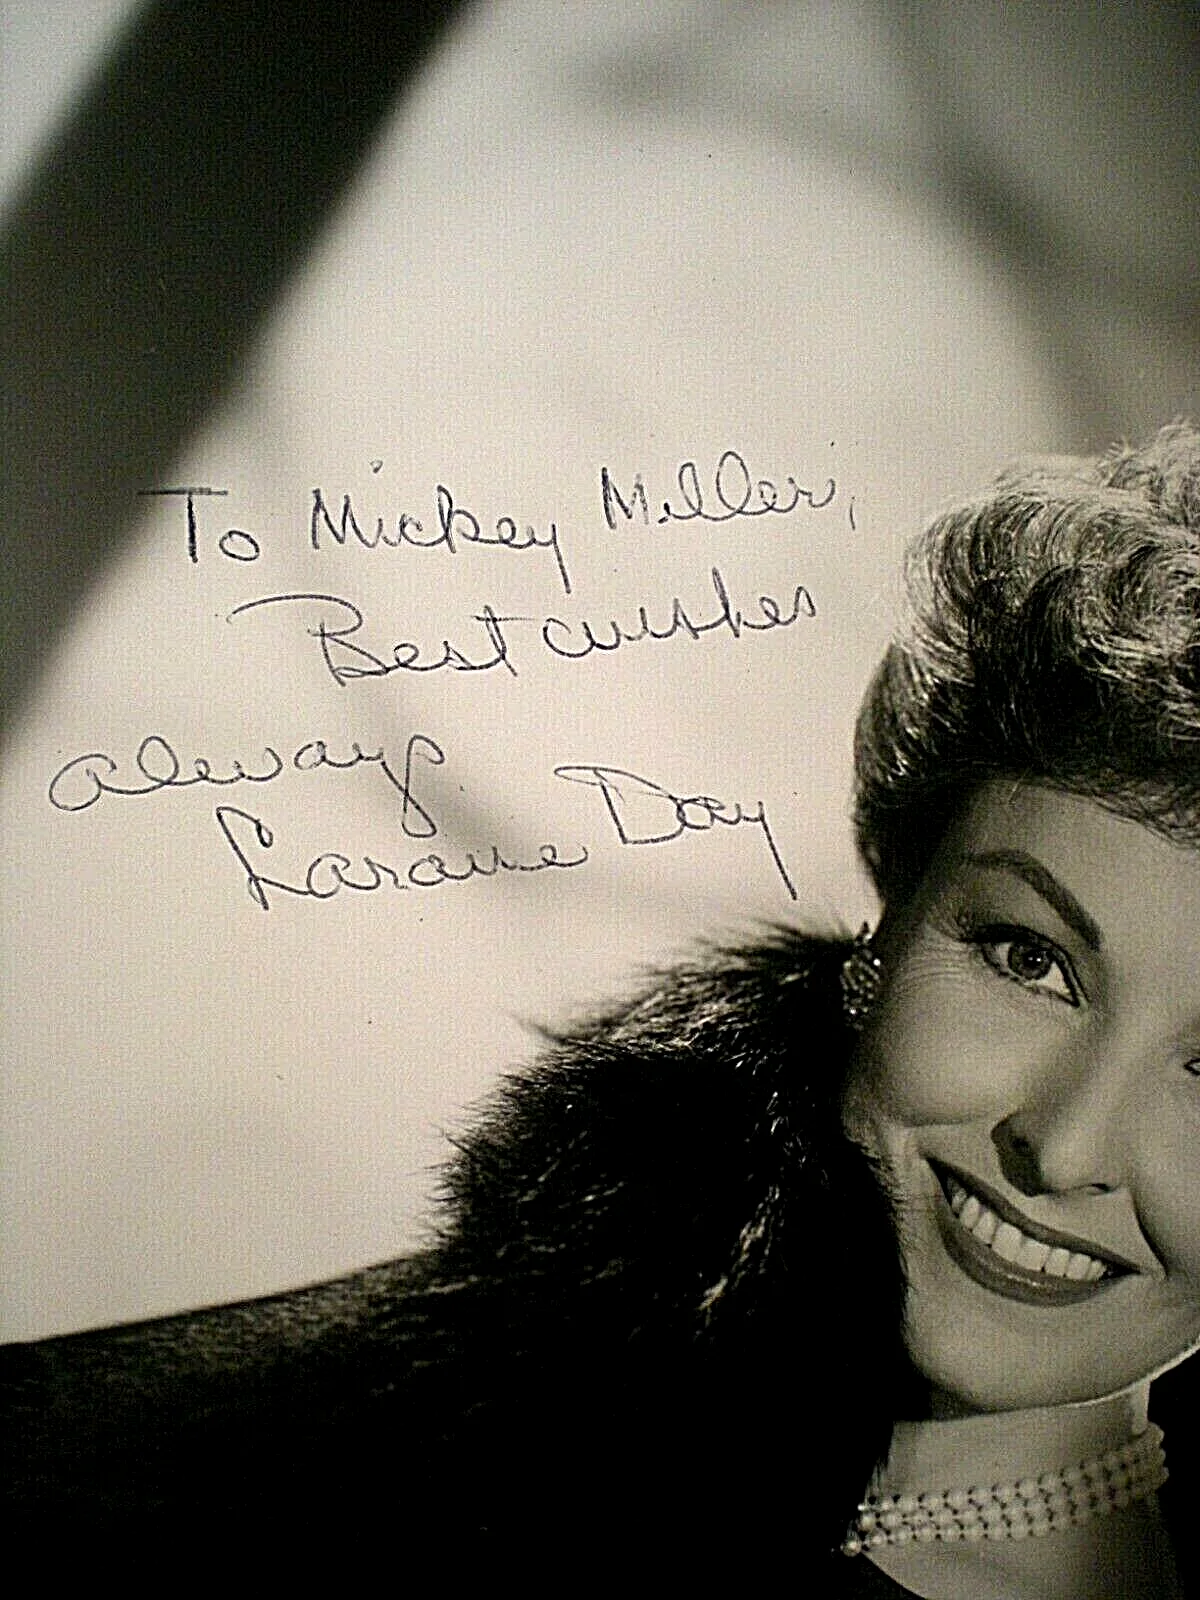 To Mickey Miller,
Best wishes
always
Laraine Day